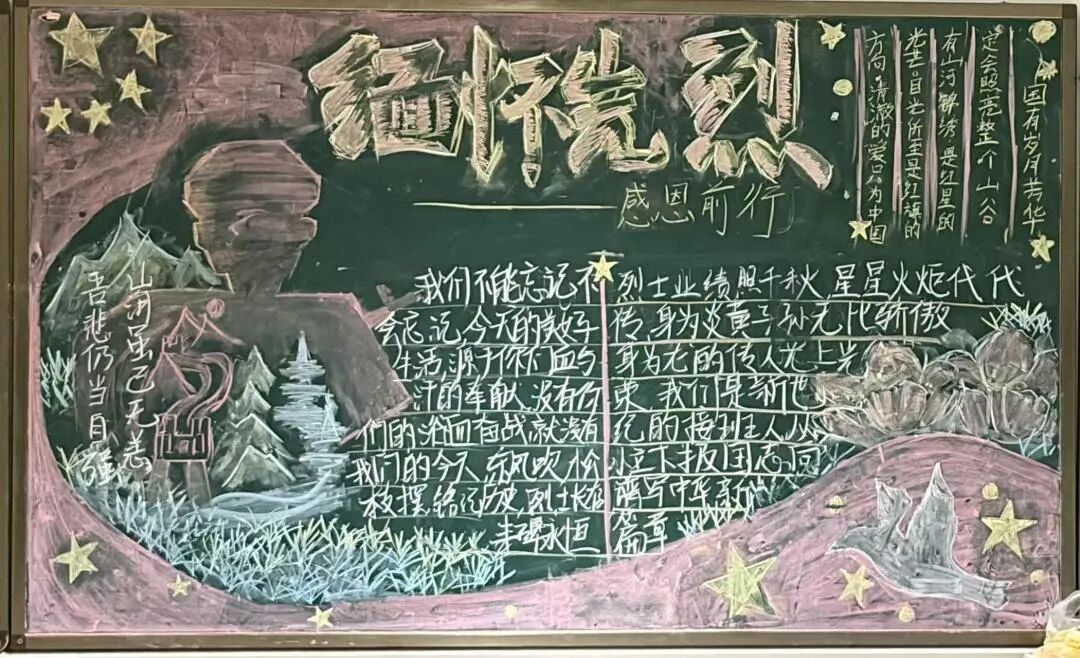 缅怀先烈
感恩前行
国有岁月芳华
定会照亮整个山谷
有山河锦绣.是红星的
光芒.目光所至是红旗的
方向.清澈的爱只为中国
山河虽已无恙
吾悲仍当自强
我们不能忘记不
会忘记.今天的美好
生活.源于你们血与
汗的奉献.没有你
们的浴血奋战就没有
我们的今天.东风吹松
枝摆.铭记历史.烈士
丰碑永恒
烈士业绩照千秋.星星火炬代代
传.身为炎黄子孙无比骄傲
身为龙的传人无上光
荣.我们是新世
纪的接班人.从
小立下报国志向
谱写中华新
篇章